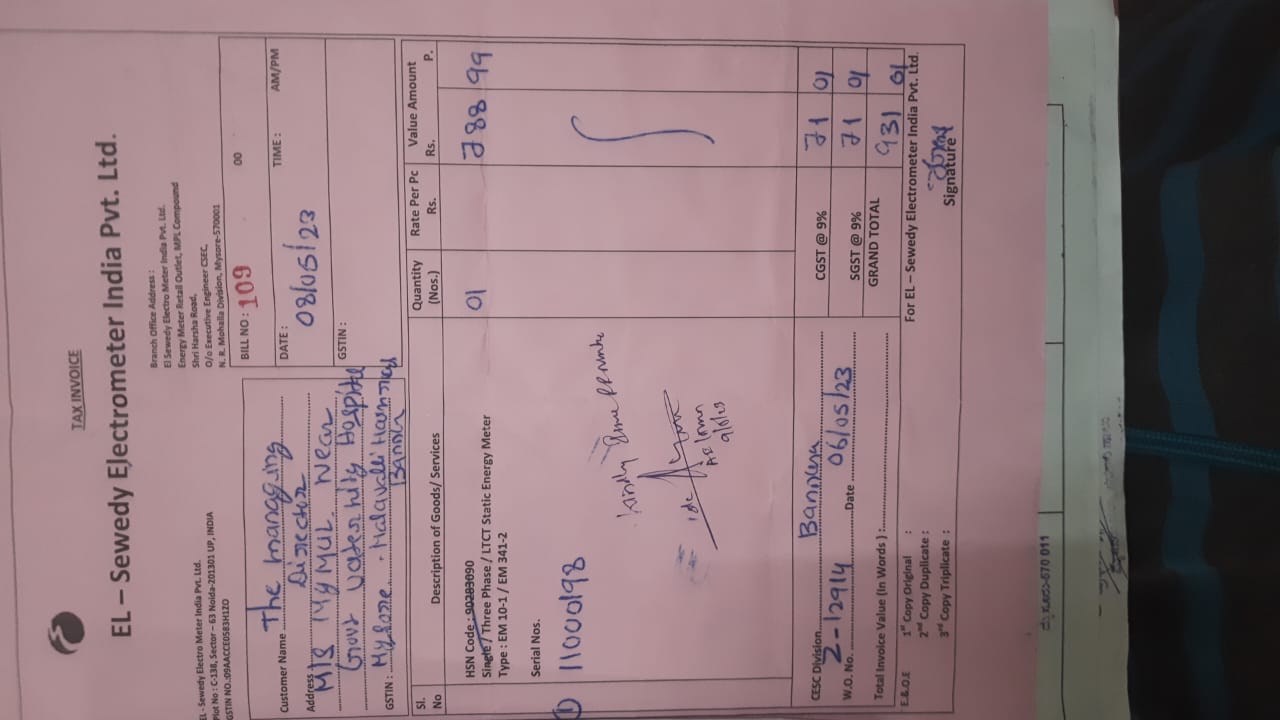 TAX INVOICE
EL – Sewedy Electrometer India Pvt. Ltd.
EL - Sewedy Electro Meter India Pvt. Ltd.
Plot No : C-138, Sector – 63 Noida-201301 UP, INDIA
GSTIN NO.:09AACCE0583H1ZO
Branch Office Address :
El Sewedy Electro Meter India Pvt. Ltd.
Energy Meter Retail Outlet, MPL Compound
Shri Harsha Road,
O/o Executive Engineer CSEC,
N. R. Mohalla Division, Mysore-570001
Customer Name The managing
Director
Address M/S MYMUL Near
Govt Hospital
Mysore
GSTIN :
BILL NO : 109 00
DATE : TIME : AM/PM
08/05/23
GSTIN :
Sl. No Description of Goods/ Services Quantity (Nos.) Rate Per Pc Rs. Value Amount Rs. P.
HSN Code : 90283090
Single / Three Phase / LTCT Static Energy Meter 01 788 99
Type : EM 10-1 / EM 341-2
Serial Nos.
1) 11000198
Kindly
CESC Division
W.O. No. 2-12914 Date 06/05/23
Total Invoice Value (In Words ) :
CGST @ 9% 71 01
SGST @ 9% 71 01
GRAND TOTAL 931 01
E.&.O.E 1st Copy Original :
2nd Copy Duplicate :
3rd Copy Triplicate :
For EL – Sewedy Electrometer India Pvt. Ltd.
Signature